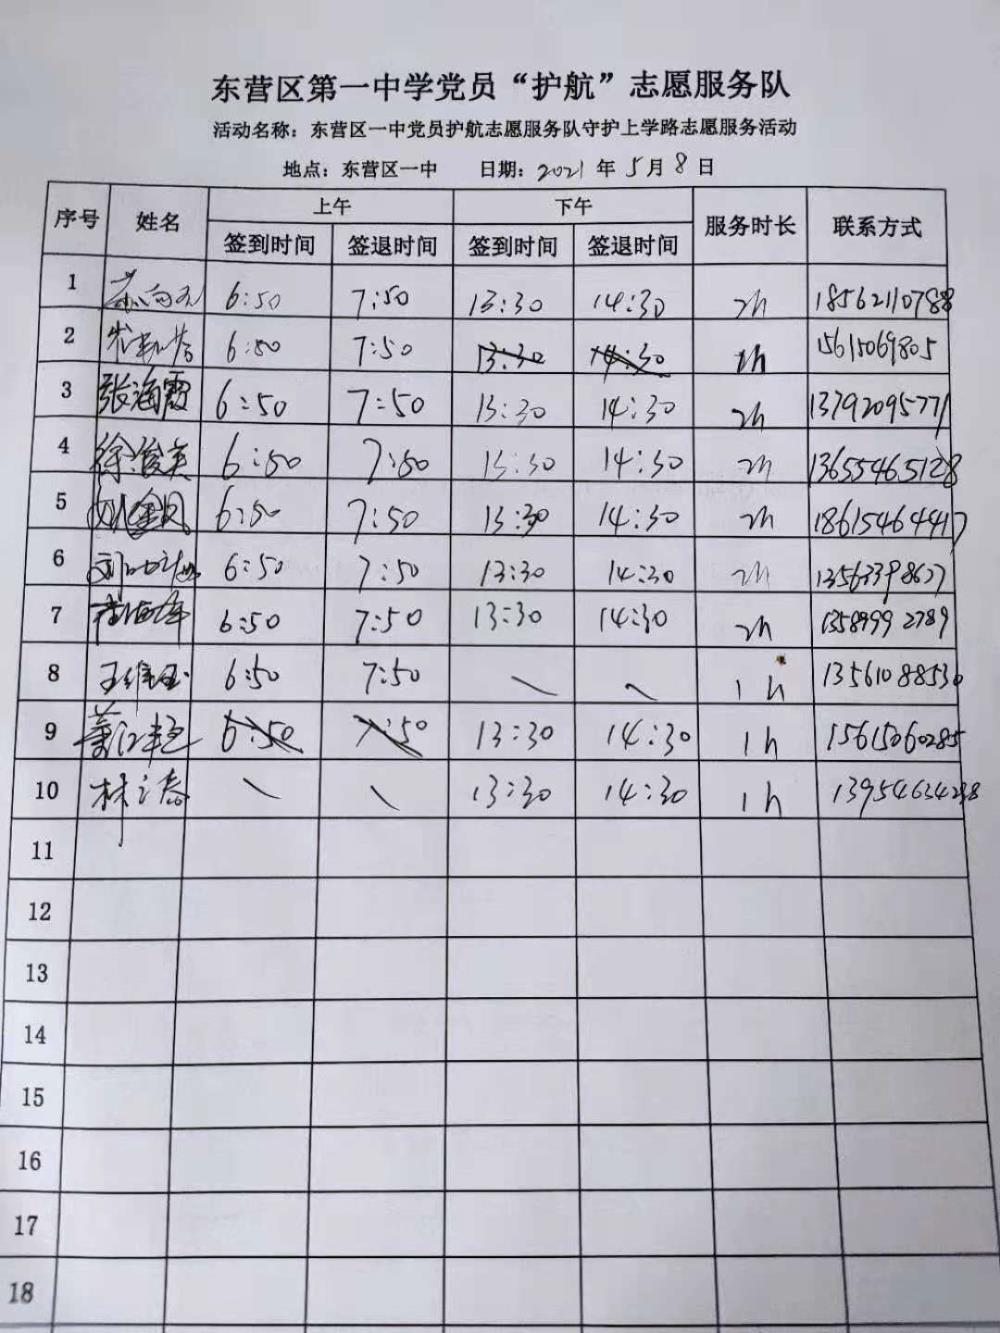 东营区第一中学党员“护航”志愿服务队
活动名称：东营区一中党员护航志愿服务队守护上学路志愿服务活动
地点：东营区一中 日期：2021 年 5 月 8 日
序号 姓名 上午 下午 服务时长 联系方式
签到时间 签退时间 签到时间 签退时间
1 6:50 7:50 13:30 14:30 2h 18562110788
2 6:50 7:50 13:30 14:30 1h 15615069805
3 张海霞 6:50 7:50 13:30 14:30 2h 13792095771
4 徐俊英 6:50 7:50 13:30 14:30 2h 13655465128
5 6:50 7:50 13:30 14:30 2h 18615464417
6 6:50 7:50 13:30 14:30 2h
7 6:50 7:50 13:30 14:30 2h 13589992789
8 6:50 7:50 1h 13561088530
9 6:50 7:50 13:30 14:30 1h 15615060285
10 13:30 14:30 1h
11
12
13
14
15
16
17
18